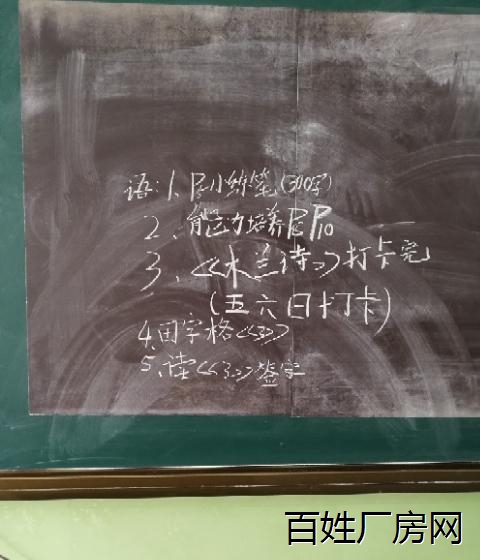 语:1、P 小练笔(300字)
2、能力培养 P10
3、《木兰诗》打卡完
(五六日打卡)
4、田字格《3》
5、读《3》签字
百姓厂房网